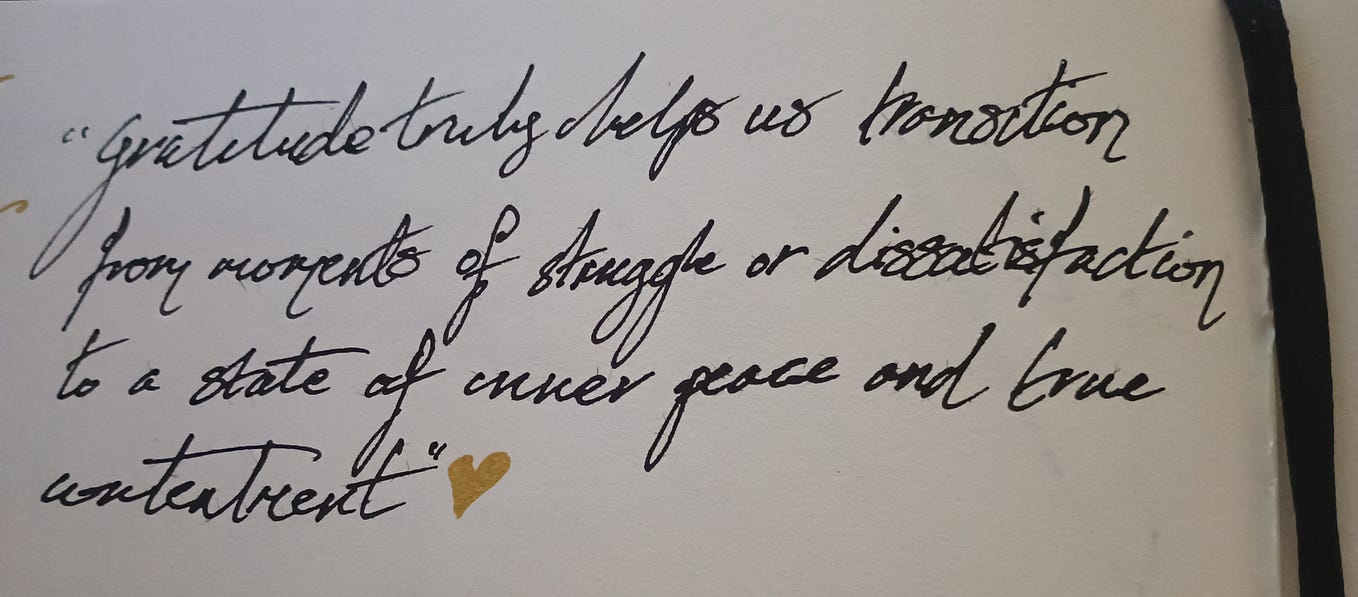 "Gratitude truly helps us transition
from moments of struggle or dissatisfaction
to a state of inner peace and true
contentment"